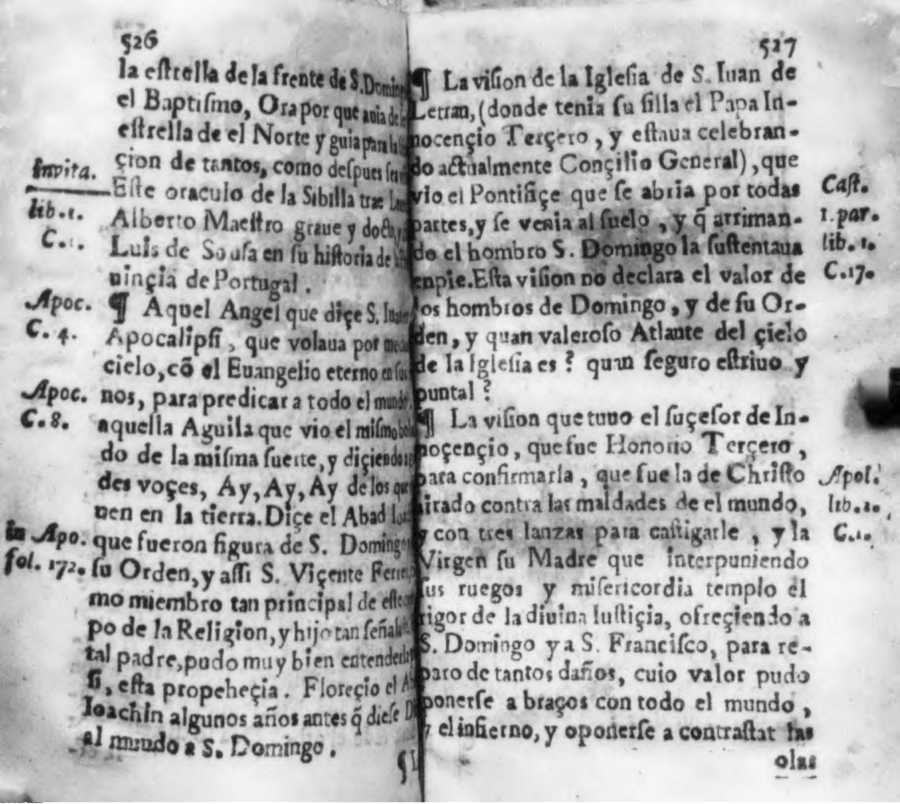 526
la estrella de la frente de S. Domin
el Baptismo, Ora por que auia de
estrella de el Norte y guia para la
çion de tantos, como despues
Este oraculo de la Sibilla trae
Alberto Maestro graue y docto, y
Luis de Sousa en su historia de la
uinçia de Portugal.
¶ Aquel Angel que diçe S. Iuan
Apocalipsi, que volaua por
cielo, cō el Euangelio eterno en
nos, para predicar a todo el mundo,
aquella Aguila que vio el mismo
do de la misma suerte, y diçiendo
des voçes, Ay, Ay, Ay de los que
uen en la tierra. Diçe el Abad
que fueron figura de S. Domingo
su Orden, y assi S. Viçente Ferre
mo miembro tan principal de este
po de la Religion, y hijo tan señala
tal padre, pudo muy bien entender
si, esta propeheçia. Floreçio el
Ioachin algunos años antes q̄ diese
al mundo a S. Domingo.
¶L
Invita.
lib. 1.
C. 1.
Apoc.
C. 4.
Apoc.
C. 8.
in Apo.
fol. 172.
527
¶ La vision de la Iglesia de S. Iuan de
Letran, (donde tenia su silla el Papa In-
nocençio Terçero, y estaua celebran-
do actualmente Conçilio General), que
vio el Pontifiçe que se abria por todas
partes, y se venia al suelo, y q̄ arriman-
do el hombro S. Domingo la sustentaua
enpie. Esta vision no declara el valor de
los hombros de Domingo, y de su Or-
den, y quan valeroso Atlante del çielo
de la Iglesia es? quan seguro estriuo y
puntal?
¶ La vision que tuuo el suçesor de In-
noçençio, que fue Honorio Terçero,
para confirmarla, que fue la de Christo
airado contra las maldades de el mundo,
y con tres lanzas para castigarle, y la
Virgen su Madre que interpuniendo
sus ruegos y misericordia templo el
rigor de la diuina Iustiçia, ofreçiendo a
S. Domingo y a S. Francisco, para re-
paro de tantos daños, cuio valor pudo
ponerse a braços con todo el mundo,
y el infierno, y oponerse a contrastat las
olas
Cast.
1. par.
lib. 1.
C. 17.
Apol.
lib. 1.
C. 1.